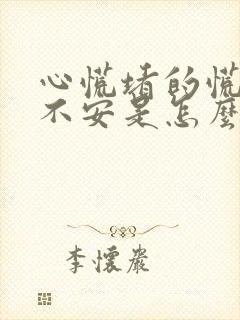 心慌堵的慌
不安是怎麼
李懷嚴